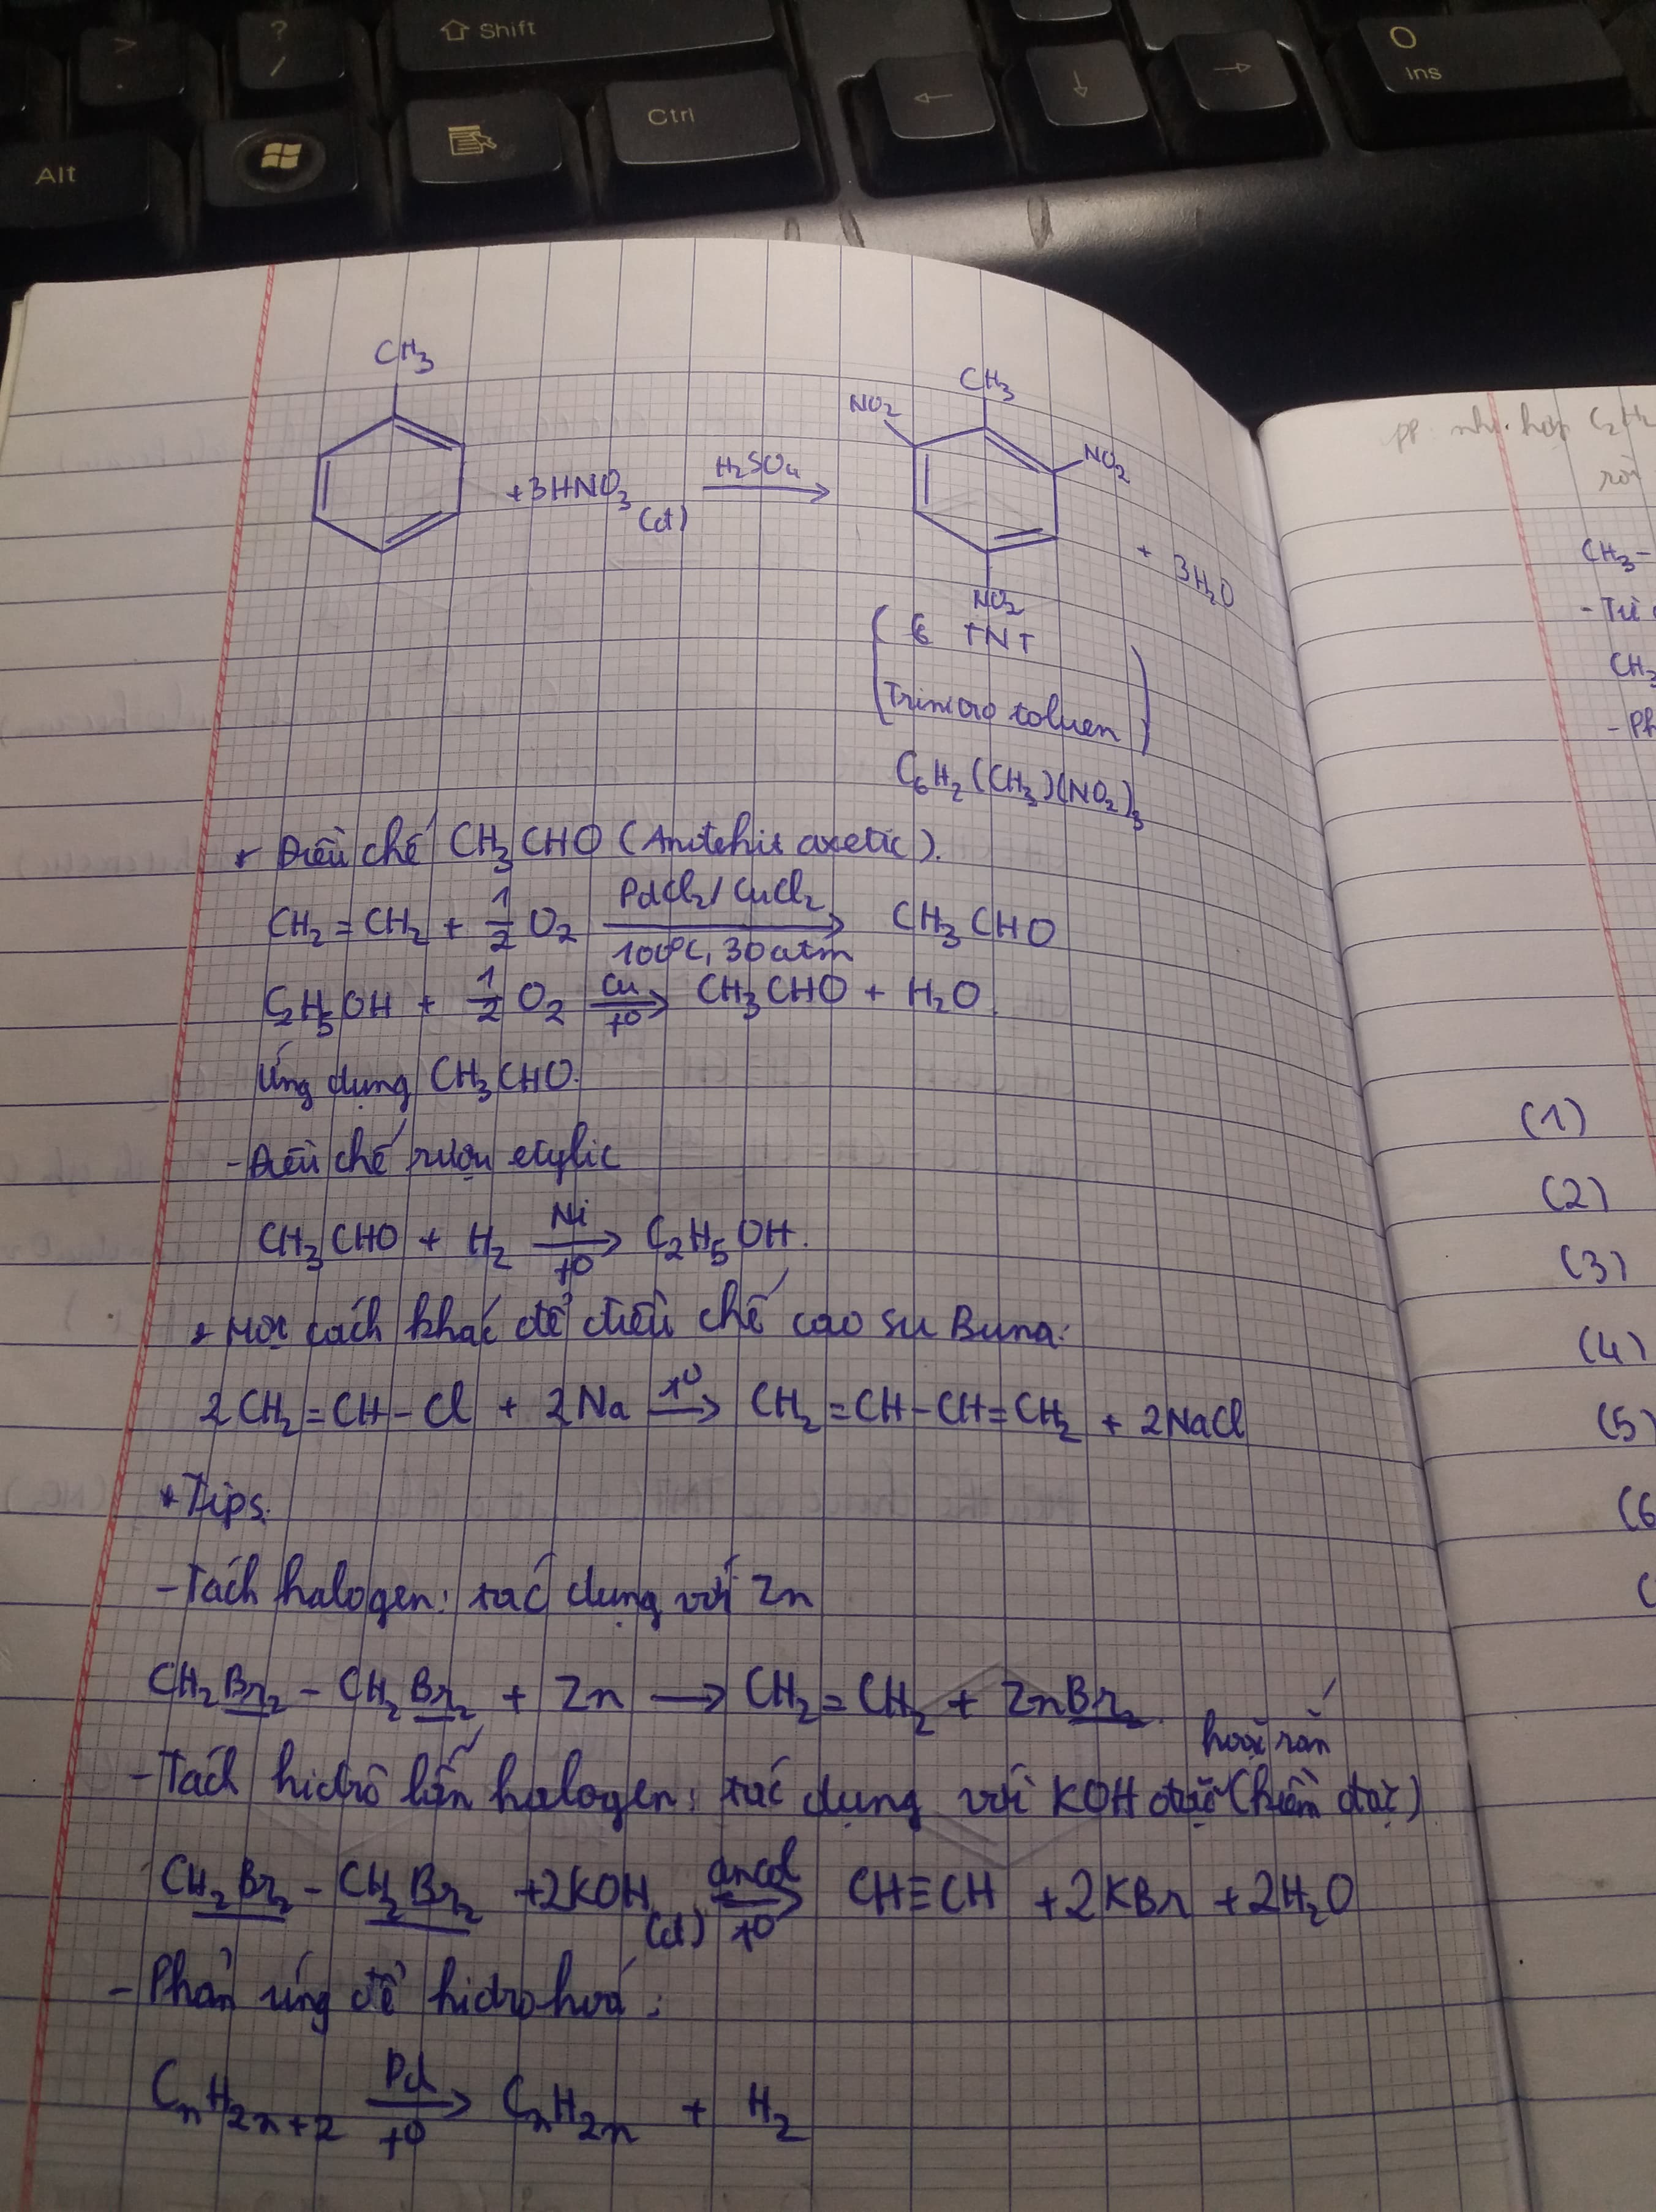 >
.
?
/
⇧ Shift
Alt
Ctrl
←
↓
→
O
Ins
CH₃
+3HNO₃
(đ)
H₂SO₄
CH₃
NO₂
NO₂
NO₂
+ 3H₂O
TNT
toluen
C₆H₂(CH₃)(NO₂)₃
* Điều chế CH₃CHO (Anđehit axetic).
CH₂=CH₂ + 1/2 O₂ PdCl₂/CuCl₂ → 100°C, 30atm CH₃CHO
C₂H₅OH + 1/2 O₂ Cu → t° CH₃CHO + H₂O.
Ứng dụng CH₃CHO.
- Điều chế rượu etylic
CH₃CHO + H₂ Ni → t° C₂H₅OH.
* Một cách khác để điều chế cao su Buna:
2CH₂=CH-Cl + 2Na t° → CH₂=CH-CH=CH₂ + 2NaCl
* Tips:
- Tách halogen: tác dụng với Zn
CH₂Br₂ - CH₂Br₂ + Zn → CH₂=CH₂ + ZnBr₂.
hoặc rắn
- Tách hiđrô lẫn halogen: tác dụng với KOH đặc (kiềm đặc)
CH₂Br₂ - CH₂Br₂ +2KOH (đ) ancol → t° CH≡CH +2KBr +2H₂O
- Phản ứng đề hiđro hoá:
CₙH₂ₙ₊₂ Pd → t° CₙH₂ₙ + H₂
C₂H₂
rồi
CH₃-
- Từ
CH₃
- Ph
(1)
(2)
(3)
(4)
(5)
(6
(